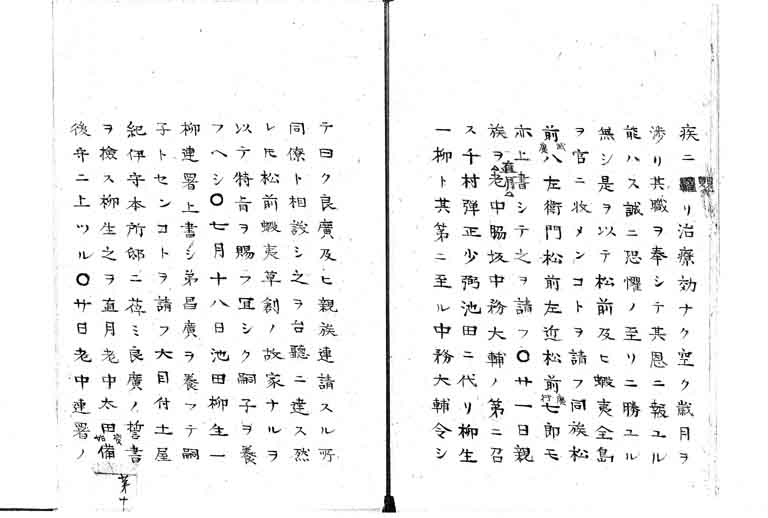 疾ニ罹リ治療効ナク空ク歳月ヲ
渉リ其職ヲ奉シテ其恩ニ報ユル
能ハス誠ニ恐懼ノ至リニ勝ユル
無シ是ヲ以テ松前及ヒ蝦夷全島
ヲ官ニ收メンコトヲ請フ同族松
前八左衛門松前左近松前七郎モ
亦上書シテ之ヲ請フ〇廿一日親
族ヲ老中脇坂中務大輔ノ第ニ召
ス千村弾正少弼池田ニ代リ柳生
一柳ト其第ニ至ル中務大輔令シ
テ曰ク良廣及ヒ親族連請スル所
同僚ト相議シ之ヲ台聽ニ達ス然
レ𪜈松前蝦夷草創ノ故家ナルヲ
以テ特旨ヲ賜フ冝シク嗣子ヲ養
フヘシ〇七月十八日池田柳生一
柳連署上書シ弟昌廣ヲ養フテ嗣
子トセンコトヲ請フ大目付土屋
紀伊守本所邸ニ莅ミ良廣ノ誓書
ヲ検ス柳生之ヲ直月老中太田備
後守ニ上ツル〇廿日老中連署ノ
直月
廣
第十